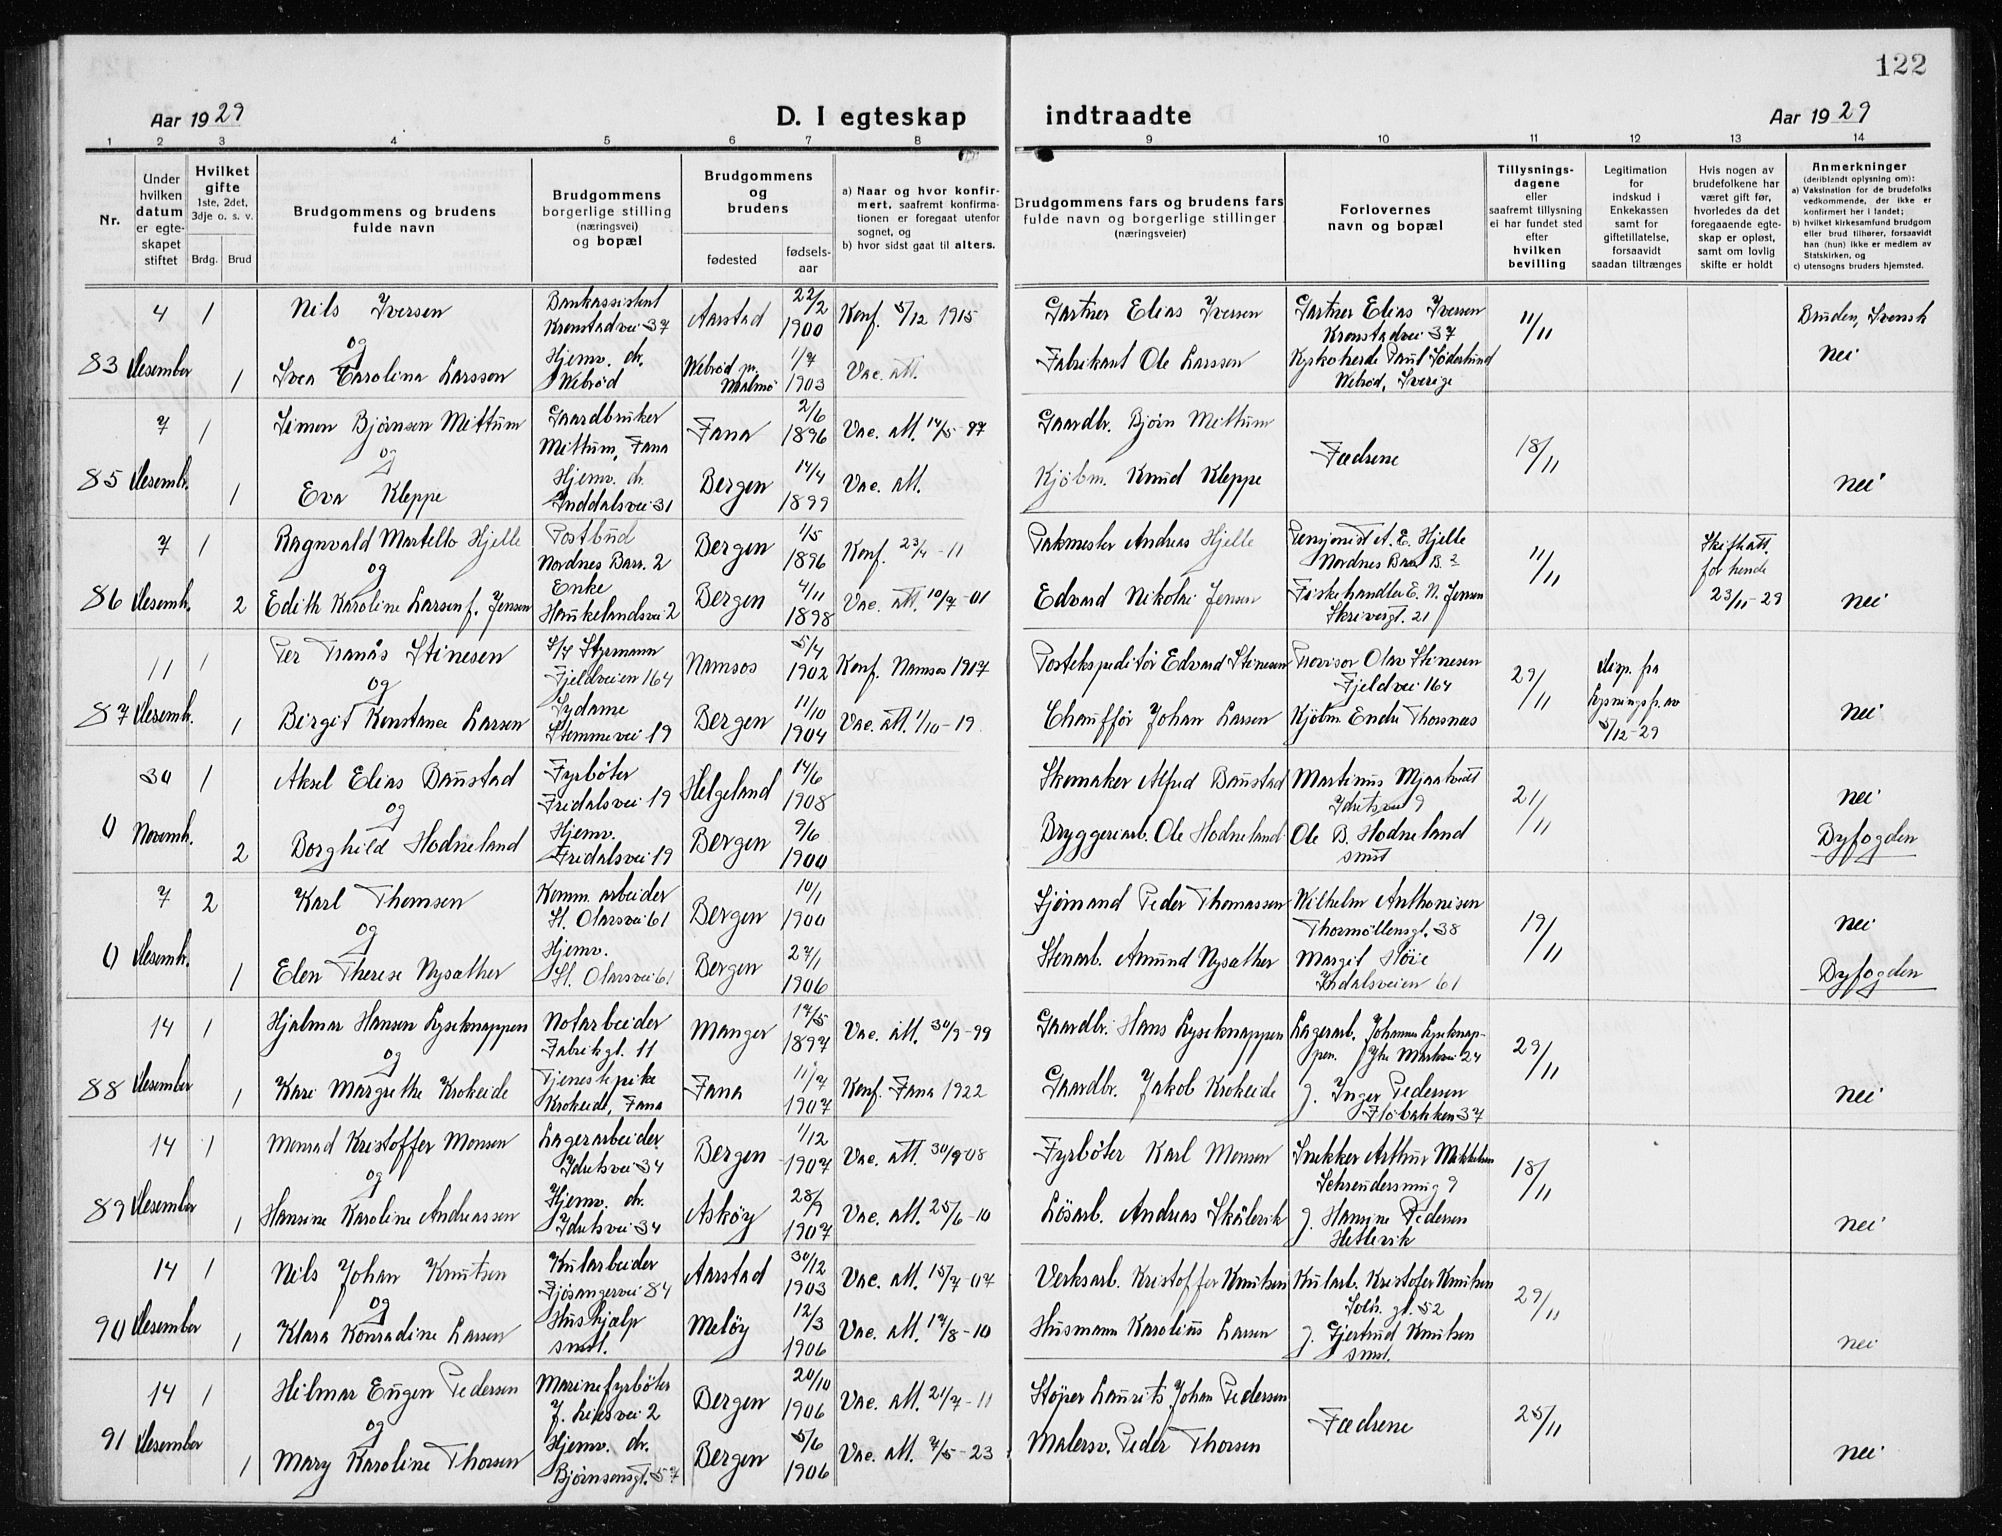 122
Aar 1929
D. I egteskap indtraadte
Aar 1929
1 2 3 4 5 6 7 8 9 10 11 12 13 14
Nr.
Under
hvilken
datum
er egte-
skapet
stiftet
Hvilket
gifte
1ste, 2det,
3dje o. s. v.
Brdg. Brud
Brudgommens og brudens
fulde navn
Brudgommens
borgerlige stilling
(næringsvei)
og bopæl
Brudgommens
og
brudens
fødested
fødsels-
aar
a) Naar og hvor konfir-
mert, saafremt konfirma-
tionen er foregaat utenfor
sognet, og
b) hvor sidst gaat til alters.
Brudgommens fars og brudens fars
fulde navn og borgerlige stillinger
(næringsveier)
Forlovernes
navn og bopæl
Tillysnings-
dagene
eller
saafremt tillysning
ei har fundet sted
efter
hvilken
bevilling
Legitimation
for
indskud i
Enkekassen
samt for
giftetillatelse,
forsaavidt
saadan tiltrænges
Hvis nogen av
brudefolkene har
været gift før,
hvorledes da det
foregaaende egte-
skap er opløst,
samt om lovlig
skifte er holdt
Anmerkninger
(deriblandt oplysning om):
a) Vaksination for de brudefolks
vedkommende, der ikke er
konfirmert her i landet;
b) hvilket kirkesamfund brudgom
eller brud tilhører, forsaavidt
han (hun) ikke er medlem av
Statskirken, og
c) utensogns bruders hjemsted.
83
4 Desember
1
1
Nils Iversen
og
Svea Carolina Larsson
Bankassistent
Kronstadvei 37
Hjemv. dr.
Webrød
Aarstad
22/2 1900
Webrød pr.
Malmø
1/7 1903
Konf. 5/12 1915
Vac. att.
Gartner Elias Iversen
Fabrikant Ole Larsson
Gartner Elias Iversen
Kronstadvei 37
Kyrkoherde Paul Söderlund
Webrød, Sverige
11/11
Bruden, Svensk
nei
85
7 Desemb.
1
1
Simon Bjørnsen Mittun
og
Eva Kleppe
Gaardbruker
Mittun, Fana
Hjemv. dr.
Inddalsvei 31
Fana
2/6 1896
Bergen
14/4 1899
Vac. att. 14/5-97
Vac. att.
Gaardbr. Bjørn Mittun
Kjøbm. Knud Kleppe
Fædrene
18/11
nei
86
7 Desemb.
1
2
Ragnvald Martello Hjelle
og
Edith Karoline Larsen f. Jensen
Postbud
Nordnes Barr. 2
Enke
Haukelandsvei 2
Bergen
1/5 1896
Bergen
4/11 1898
Konf. 23/4-11
Vac. att. 10/7-01
Pakmester Andreas Hjelle
Edvard Nikolai Jensen
Pensjonist A. E. Hjelle
Nordnes Bar B. 2
Fiskehandler E. N. Jensen
Skrivergt. 21
11/11
Skifteatt.
for hende
23/11-29
nei
87
11 Desemb.
1
1
Per Tranås Stinesen
og
Birgit Konstance Larsen
S/S Styrmann
Fjeldveien 164
Sydame
Stemmevei 19
Namsos
5/4 1902
Bergen
11/10 1904
Konf. Namsos 1917
Vac. att. 1/10-19.
Postekspeditør Edvard Stinesen
Chauffør Johan Larsen
Provisor Olav Stinesen
Fjeldvei 164
Kjøbm. Endre Thorsnes
29/11
disp. fra
lysningsfr. av
5/12-29
nei
0
30 Novemb.
1
2
Aksel Elias Baustad
og
Borghild Hodneland
Fyrbøter
Fridalsvei 19
Hjemv.
Fridalsvei 19
Helgeland
14/6 1908
Bergen
9/6 1900
Skomaker Alfred Baustad
Bryggeriarb. Ole Hodneland
Martinus Mjaatvedt
Idrætsvei 9
Ole B. Hodneland
smst
21/11
nei
Byfogden
0
7 Desemb.
2
1
Karl Thomsen
og
Elen Therese Nysæther
Komm. arbeider
St. Olavsvei 61
Hjemv.
St. Olavsvei 61
Bergen
10/1 1900
Bergen
27/1 1906
Sjømand Peder Thomassen
Stenarb. Amund Nysæther
Wilhelm Anthonisen
Thormøllensgt. 38
Margit Høie
Indalsveien 61
19/11
nei
Byfogden
88
14 Desember
1
1
Hjalmar Hansen Lyseknappen
og
Kari Margrethe Krokeide
Notarbeider
Fabrikgt. 11
Tjenestepike
Krokeide, Fana
Manger
17/5 1897
Fana
11/7 1907
Vac. att. 30/9-99
Konf. Fana 1922
Gaardbr. Hans Lyseknappen
Gaardbr. Jakob Krokeide
Lagerarb. Johannes Lyseknap-
pen. Ytre Markvei 24
g. Inger Pedersen
Fløbakken 37
29/11
nei
89
14 Desember
1
1
Monrad Kristoffer Monsen
og
Hansine Karoline Andreassen
Lagerarbeider
Idretsvei 34
Hjemv. dr.
Idretsvei 34
Bergen
1/12 1907
Askøy
28/9 1907
Vac. att. 30/9-08
Vac. att. 25/6-10
Fyrbøter Karl Monsen
Løsarb. Andreas Skålevik
Snekker Arthur Mikkelsen
Schreudersmug 9
g. Hansine Pedersen
Hetlevik
18/11
nei
90
14 Desember
1
1
Nils Johan Knutsen
og
Klara Konradine Larsen
Kularbeider
Fjøsangervei 84
Hushjælp
smst.
Aarstad
30/12 1903
Meløy
12/3 1906
Vac. att. 15/7-07
Vac. att. 17/8-10
Verksarb. Kristoffer Knutsen
Husmann Karolius Larsen
Kularb. Kristofer Knutsen
Solh. gt. 52
g. Gjertrud Knutsen
smst.
29/11
nei
91
14 Desember
1
1
Hilmar Eugen Pedersen
og
Mary Karoline Thorsen
Marinefyrbøter
J. Liesvei 2
Hjemv. dr.
Bjørnsonsgt. 57
Bergen
20/10 1906
Bergen
5/6 1906
Vac. att. 21/7-11
Vac. att. 7/5-23
Støper Laurits Johan Pedersen
Malersv. Peder Thorsen
Fædrene
25/11
nei